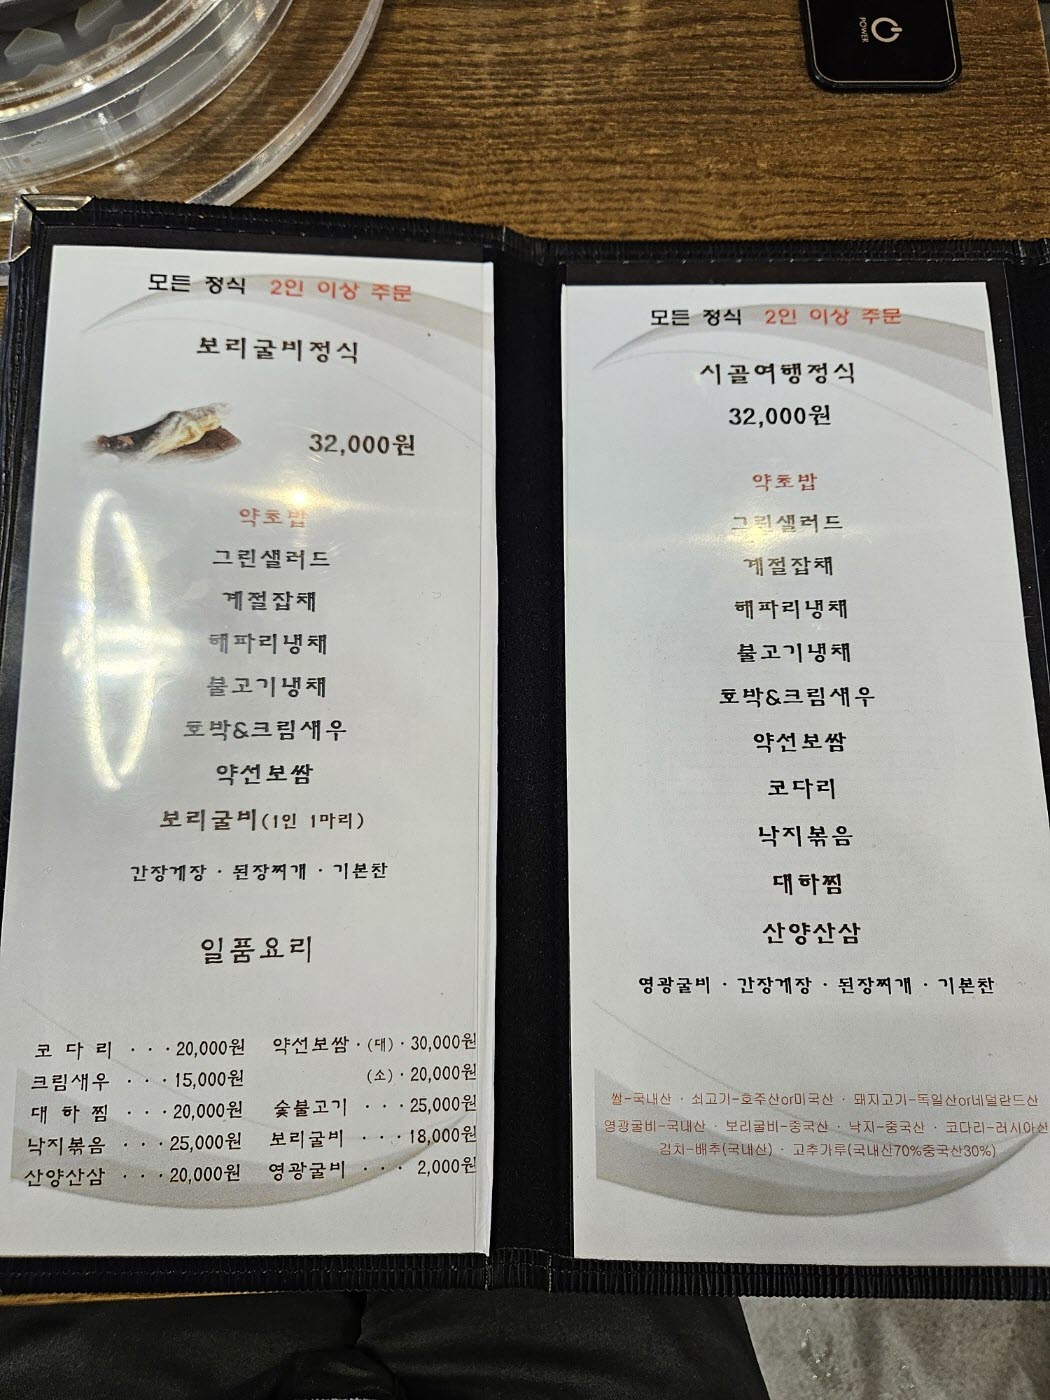 POWER
모든 정식 2인 이상 주문
보리굴비정식
32,000원
약초밥
그린샐러드
계절잡채
해파리냉채
불고기냉채
호박&크림새우
약선보쌈
보리굴비(1인 1마리)
간장게장 · 된장찌개 · 기본찬
일품요리
코 다 리 · · · 20,000원
크림새우 · · · 15,000원
대 하 찜 · · · 20,000원
낙지볶음 · · · 25,000원
산양산삼 · · · 20,000원
약선보쌈 · (대) · 30,000원
(소) · 20,000원
숯불고기 · · · 25,000원
보리굴비 · · · 18,000원
영광굴비 · · · 2,000원
모든 정식 2인 이상 주문
시골여행정식
32,000원
약초밥
그린샐러드
계절잡채
해파리냉채
불고기냉채
호박&크림새우
약선보쌈
코다리
낙지볶음
대하찜
산양산삼
영광굴비 · 간장게장 · 된장찌개 · 기본찬
쌀-국내산 · 쇠고기-호주산or미국산 · 돼지고기-독일산or네덜란드산
영광굴비-국내산 · 보리굴비-중국산 · 낙지-중국산 · 코다리-러시아산
김치-배추(국내산) · 고추가루(국내산70%중국산30%)